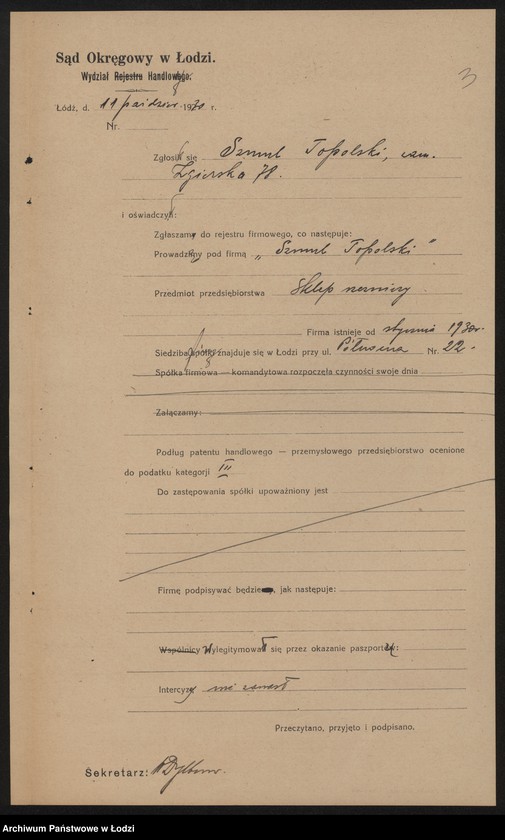 3
Sąd Okręgowy w Łodzi.
Wydział Rejestru Handlowego.
Łódź, d. 11 paździer 1930 r.
Nr.
Zgłosił się Szmul Topolski, zam.
Zgierska 78.
i oświadczył:
Zgłaszam do rejestru firmowego, co następuje:
Prowadzę pod firmą „Szmul Topolski"
Przedmiot przedsiębiorstwa Sklep
Firma istnieje od stycznia 1930 r.
Siedziba spółki znajduje się w Łodzi przy ul. Nr. 22.
Spółka firmowa — komandytowa rozpoczęła czynności swoje dnia
Załączamy:
Podług patentu handlowego — przemysłowego przedsiębiorstwo ocenione
do podatku kategorji III
Do zastępowania spółki upoważniony jest
Firmę podpisywać będzie, jak następuje:
Wspólnicy wylegitymował się przez okazanie paszportu:
Intercyzy nie zawarł
Przeczytano, przyjęto i podpisano.
Sekretarz:
Archiwum Państwowe w Łodzi